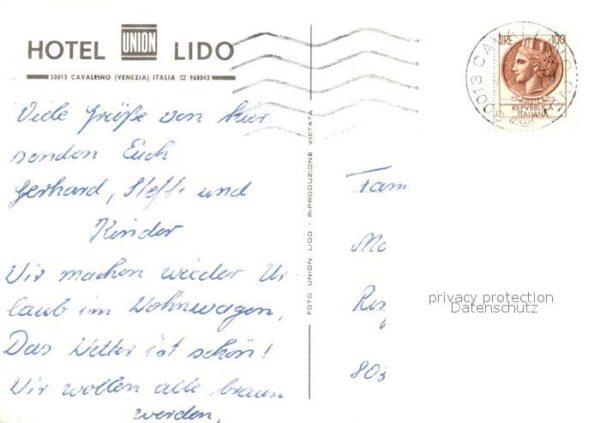 HOTEL UNION LIDO
30013 CAVALLINO (VENEZIA) ITALIA ☎ 968043
LIRE 100
REPVBBLICA
ITALIANA
30013 CAVALLINO
Viele Grüße von hier
senden Euch
Gerhard, Steffi und
Kinder
Wir machen wieder Ur-
laub im Wohnwagen,
Das Wetter ist schön!
Wir wollen alle braun
werden.
FOTO UNION LIDO - RIPRODUZIONE VIETATA
Fam
Ma
803
privacy protection
Datenschutz